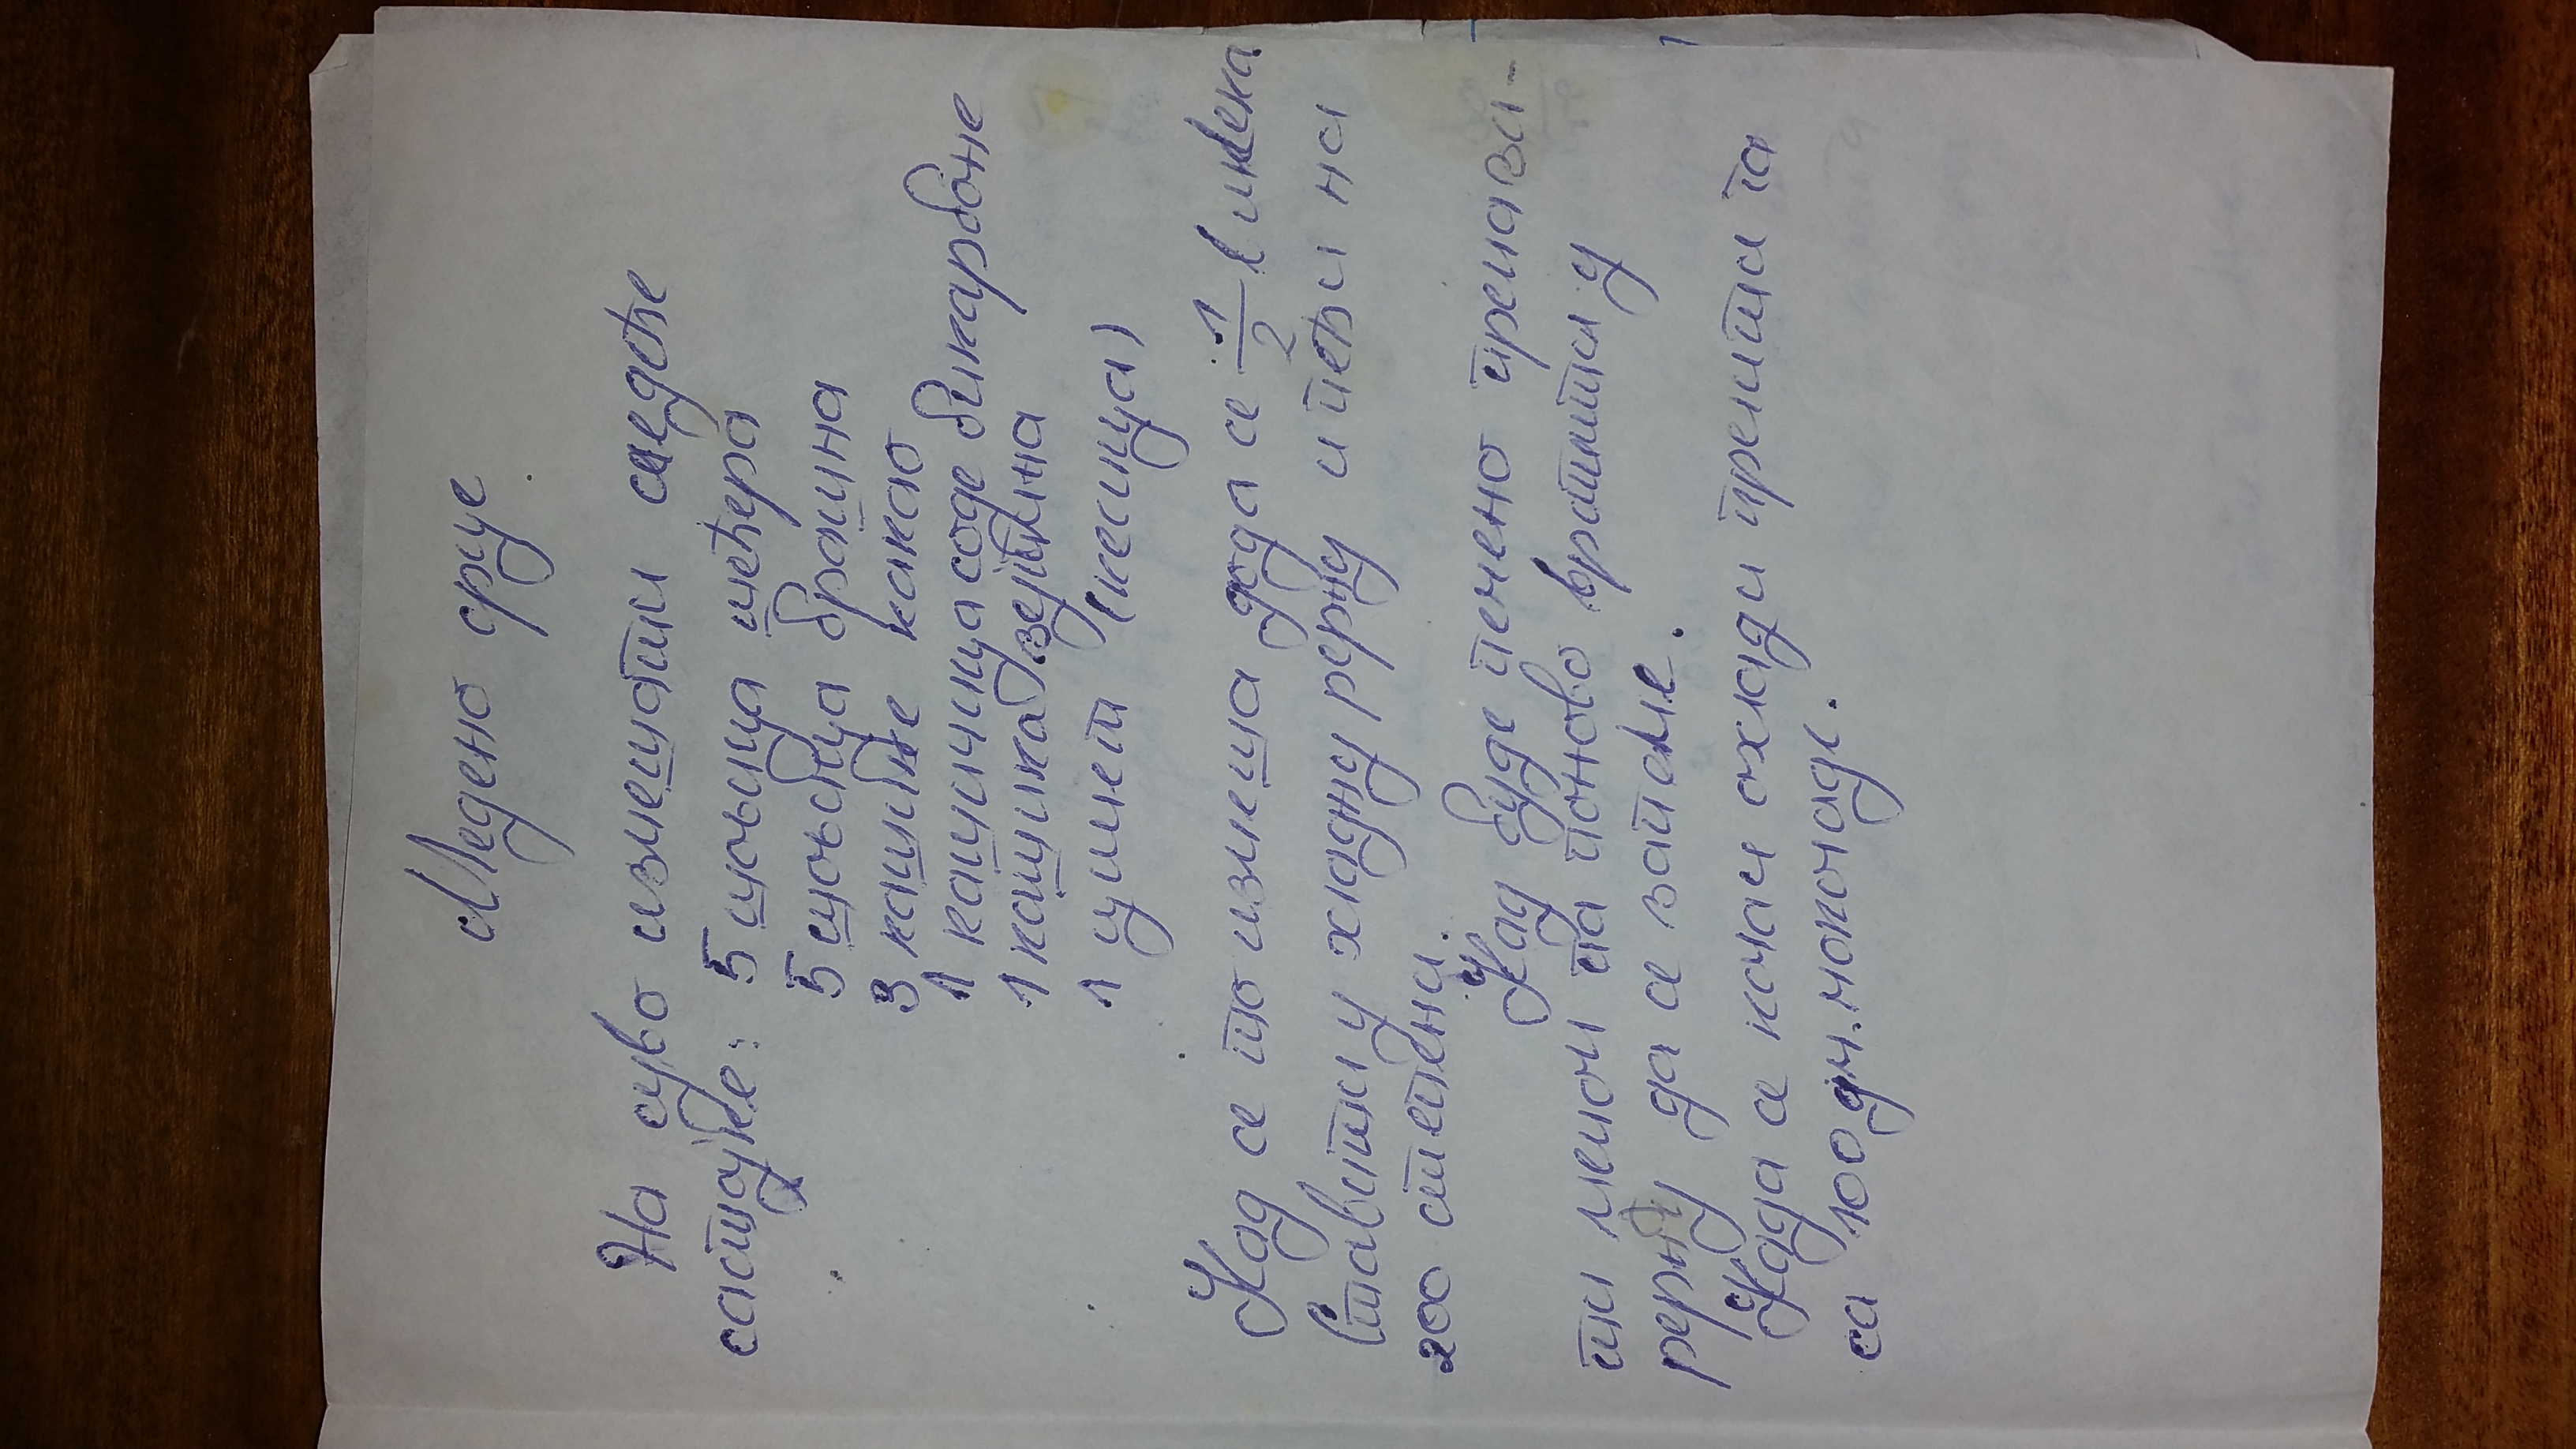 Медено срце
На суво измешати следеће
састојке: 5 шољица шећера
5 шољица брашна
3 кашике какао
1 кашичица соде бикарбоне
1 кашика зејтина
1 цимет (кесица)
Кад се то измеша дода се 1/2 l млека
Ставити у хладну рерну и пећи на
200 степени.
Кад буде печено премаза-
ти медом па поново вратити у
рерну да се запече.
Када се колач охлади прелити га
са 100 гр. чоколаде.